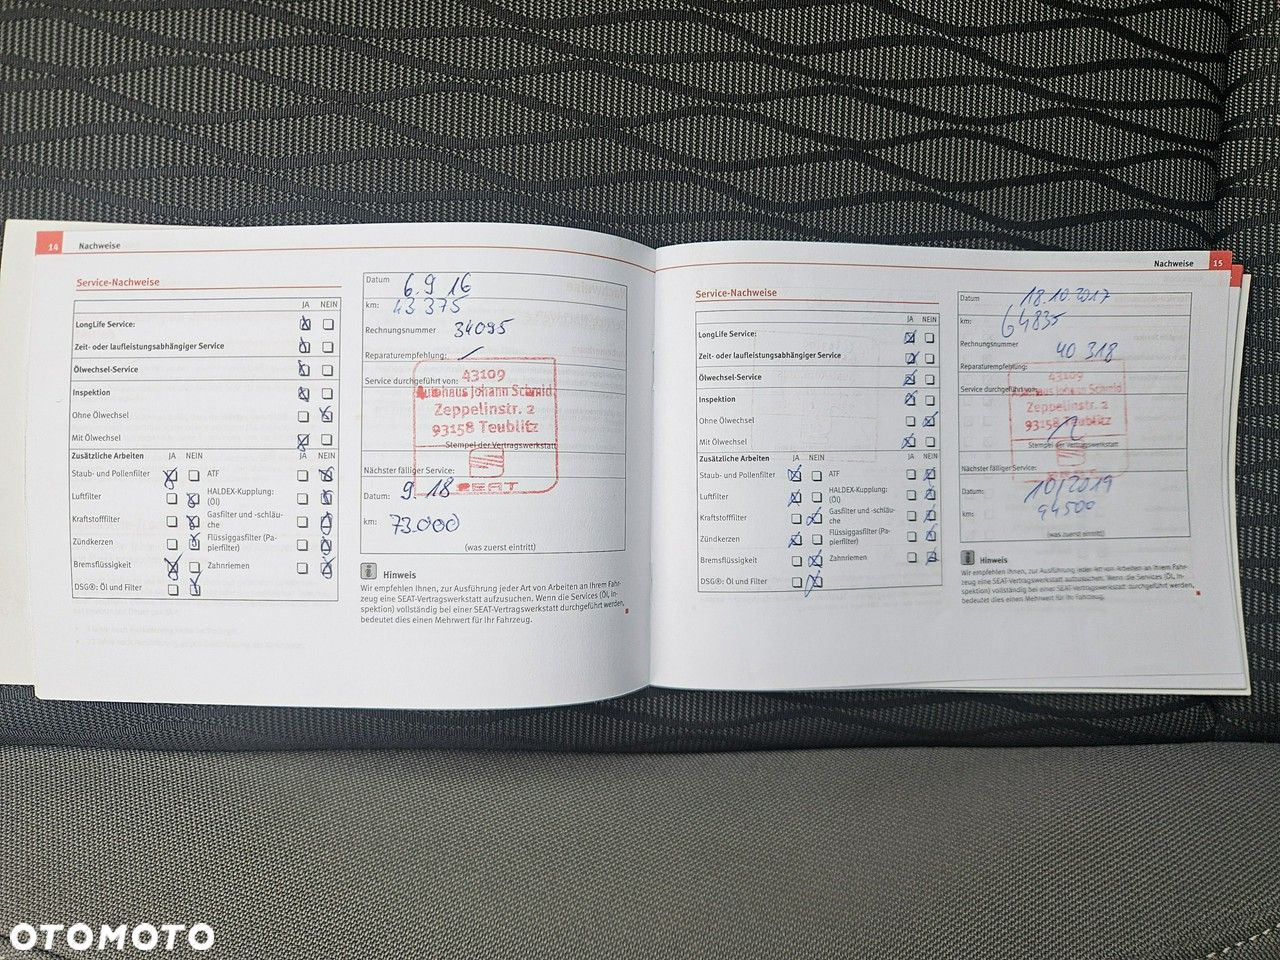 14 Nachweise
Service-Nachweise
JA NEIN
LongLife Service:
Zeit- oder laufleistungsabhängiger Service
Ölwechsel-Service
Inspektion
Ohne Ölwechsel
Mit Ölwechsel
Zusätzliche Arbeiten JA NEIN JA NEIN
Staub- und Pollenfilter ATF
Luftfilter HALDEX-Kupplung:
(Öl)
Kraftstofffilter Gasfilter und -schläu-
che
Zündkerzen Flüssiggasfilter (Pa-
pierfilter)
Bremsflüssigkeit Zahnriemen
DSG®: Öl und Filter
Datum 6.9.16
km: 43 375
Rechnungsnummer 34095
Reparaturempfehlung:
Service durchgeführt von:
43109
Autohaus Johann Schmid
Zeppelinstr. 2
93158 Teublitz
Stempel der Vertragswerkstatt
SEAT
Nächster fälliger Service:
Datum: 9.18
km: 73.000
(was zuerst eintritt)
Hinweis
Wir empfehlen Ihnen, zur Ausführung jeder Art von Arbeiten an Ihrem Fahr-
zeug eine SEAT-Vertragswerkstatt aufzusuchen. Wenn die Services (Öl, In-
spektion) vollständig bei einer SEAT-Vertragswerkstatt durchgeführt werden,
bedeutet dies einen Mehrwert für Ihr Fahrzeug.
Nachweise 15
Service-Nachweise
JA NEIN
LongLife Service:
Zeit- oder laufleistungsabhängiger Service
Ölwechsel-Service
Inspektion
Ohne Ölwechsel
Mit Ölwechsel
Zusätzliche Arbeiten JA NEIN JA NEIN
Staub- und Pollenfilter ATF
Luftfilter HALDEX-Kupplung:
(Öl)
Kraftstofffilter Gasfilter und -schläu-
che
Zündkerzen Flüssiggasfilter (Pa-
pierfilter)
Bremsflüssigkeit Zahnriemen
DSG®: Öl und Filter
Datum 18.10.2017
km: 64835
Rechnungsnummer 40 318
Reparaturempfehlung:
Service durchgeführt von:
43109
Autohaus Johann Schmid
Zeppelinstr. 2
93158 Teublitz
Stempel der Vertragswerkstatt
Nächster fälliger Service:
Datum: 10/2019
km: 94500
(was zuerst eintritt)
Hinweis
Wir empfehlen Ihnen, zur Ausführung jeder Art von Arbeiten an Ihrem Fahr-
zeug eine SEAT-Vertragswerkstatt aufzusuchen. Wenn die Services (Öl, In-
spektion) vollständig bei einer SEAT-Vertragswerkstatt durchgeführt werden,
bedeutet dies einen Mehrwert für Ihr Fahrzeug.
OTOMOTO